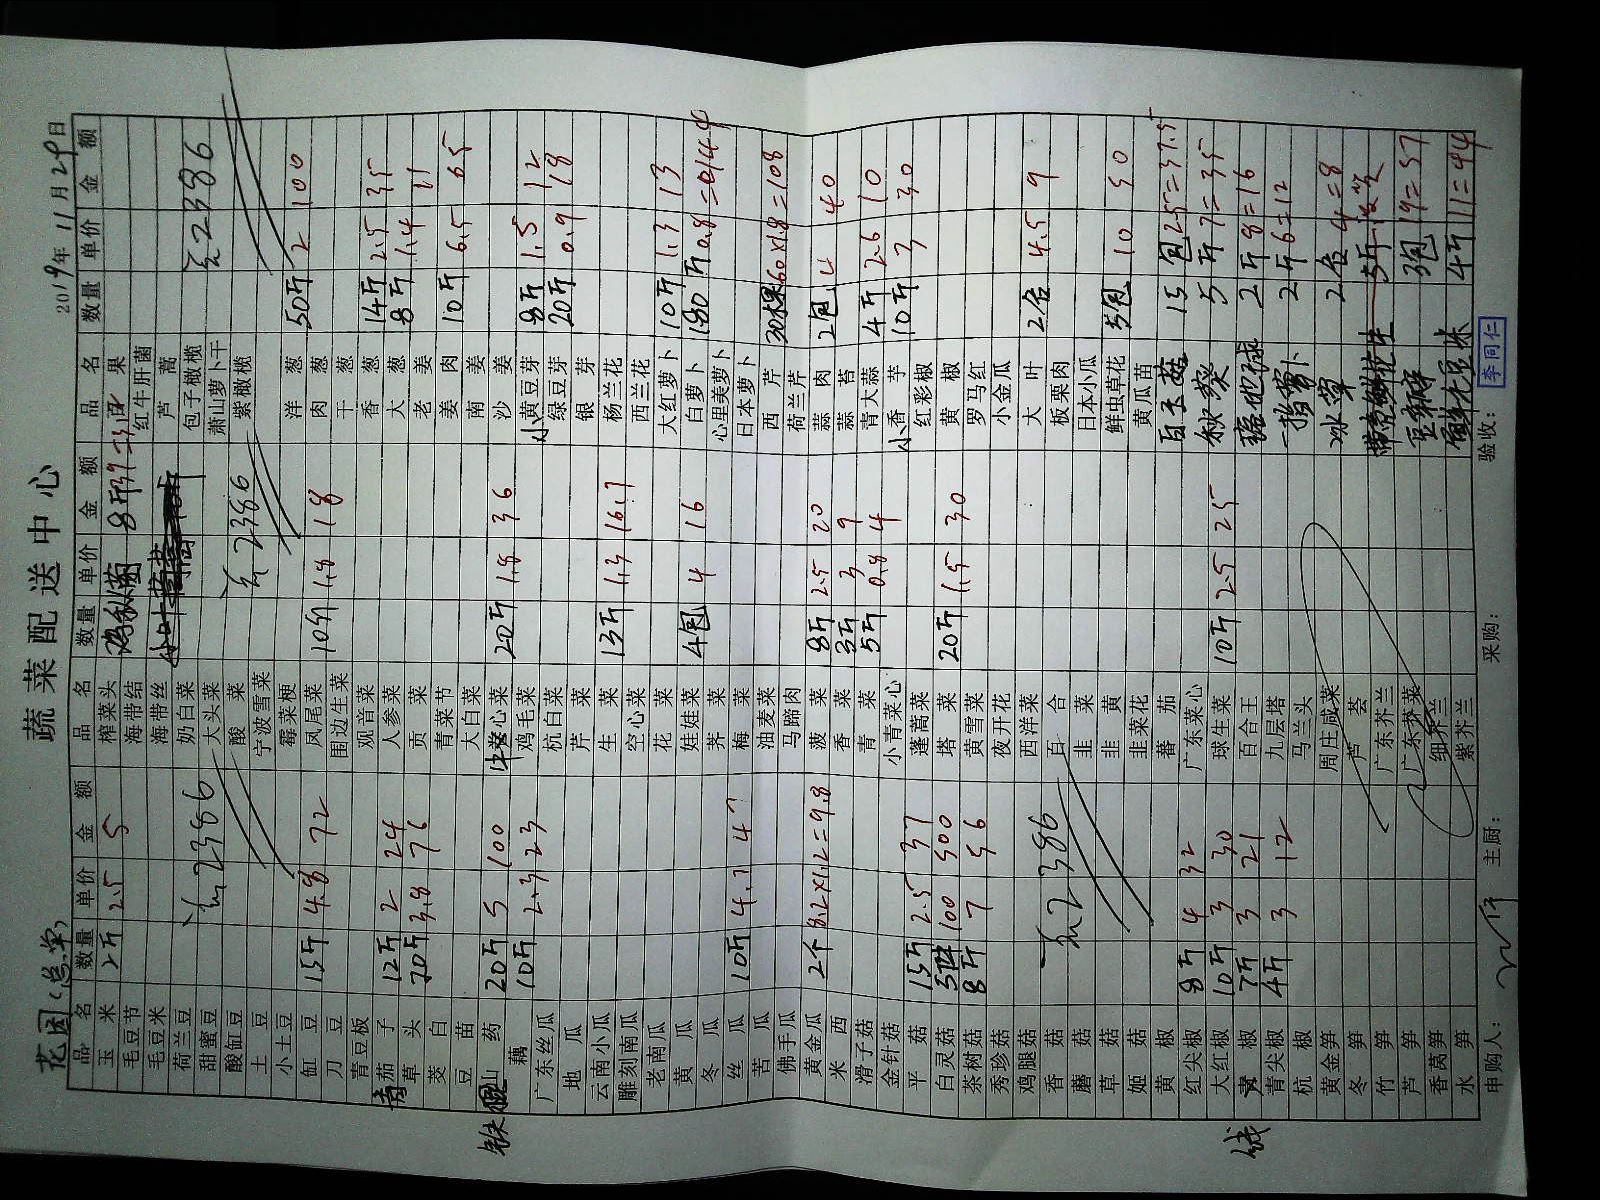 蔬菜配送中心
花园(总单) 2019年11月29日
品名 数量 单价 金额 品名 数量 单价 金额 品名 数量 单价 金额
玉米 2斤 2.5 5 榨菜头 果
毛豆节 海带结 红牛肝菌
毛豆米 海带丝 芦蒿
荷兰豆 奶白菜 包子橄榄
甜蜜豆 大头菜 萧山萝卜干
酸缸豆 酸菜 紫橄榄
土豆 宁波雪菜
小土豆 霉菜梗 洋葱 50斤 2 100
缸豆 15斤 4.8 72 凤尾菜 10斤 1.8 18 肉葱
刀豆 围边生菜 干葱
青豆板 观音菜 香葱 14斤 2.5 35
茄子 12斤 2 24 人参菜 大葱 8斤 1.4 11
草头 20斤 3.8 76 贡菜 老姜
茭白 青菜节 姜肉 10斤 6.5 65
豆苗 大白菜 南姜
铁棍山药 20斤 5 100 牛心菜 20斤 1.8 36 沙姜
藕 10斤 2.3 23 鸡毛菜 小黄豆芽 8斤 1.5 12
广东丝瓜 杭白菜 绿豆芽 20斤 0.9 18
地瓜 芹菜 银芽
云南小瓜 生菜 13斤 1.3 16.7 杨兰花
雕刻南瓜 空心菜 西兰花
老南瓜 花菜 大红萝卜 10斤 1.3 13
黄瓜 娃娃菜 4包 4 16 白萝卜 180斤 0.8=144
冬瓜 荠菜 心里美萝卜
丝瓜 10斤 4.7 47 梅菜 日本萝卜
苦瓜 油麦菜 西芹 30棵 60×1.8=108
佛手瓜 马蹄肉 荷兰芹
黄金瓜 2个 8.2×1.2=9.8 菠菜 8斤 2.5 20 蒜肉 2包 4 40
米西 香菜 3斤 3 9 蒜苔
滑子菇 青菜 5斤 0.8 4 青大蒜 4斤 2.6 10
金针菇 小青菜心 小香芋 10斤 3 30
平菇 15斤 2.5 37 蓬蒿菜 红彩椒
白灵菇 100 500 塔菜 20斤 1.5 30 黄椒
茶树菇 8斤 7 56 黄雪菜 罗马红
秀珍菇 夜开花 小金瓜
鸡腿菇 西洋菜 大叶 2合 4.5 9
香菇 百合 板栗肉
蘑菇 韭菜 日本小瓜
草菇 韭黄 鲜虫草花 5包 10 50
姬菇 韭菜花 黄瓜苗
黄椒 蕃茄 白玉菇 15包 2.5=37.5
红尖椒 8斤 4 32 广东菜心 秋葵 5斤 7=35
大红椒 10斤 3 30 球生菜 10斤 2.5 25 2斤 8=16
椒 7斤 3 21 百合王 一指萝卜 2斤 6=12
青尖椒 4斤 3 12 九层塔
杭椒 马兰头 冰草 2合 4=8
黄金笋 周庄咸菜
冬笋 芦荟 3包 19=57
竹笋 广东芥兰 4斤 11=44
芦笋 广东芥菜
香莴笋 细芥兰
水笋 紫芥兰
申购人: 主厨: 采购: 验收: 李同仁